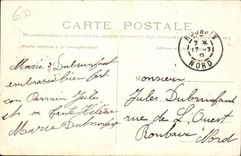 60
CARTE POSTALE
ROUBAIX
17-7
NORD
Marie Dubrunfaut
embrasse bien fort
son Parrain Jules
et sa tante Hélène
Marie Dubrunfaut
Monsieur
Jules Dubrunfaut
rue de l'Ouest
Roubaix
Nord